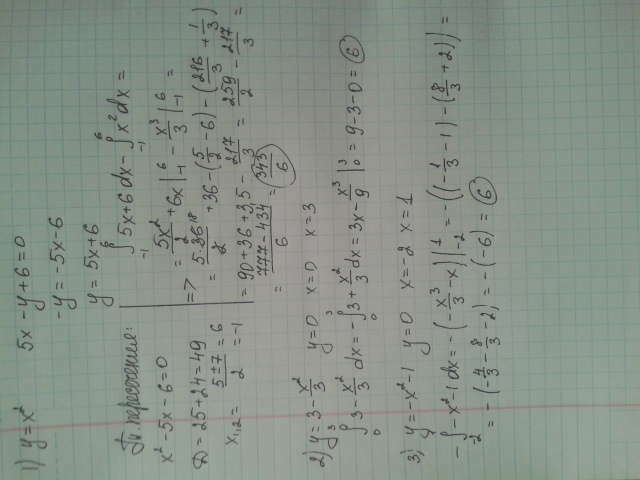 1) y = x²   5x - y + 6 = 0
-y = -5x - 6
y = 5x + 6
Тч. пересечения:
x² - 5x - 6 = 0
D = 25 + 24 = 49
x₁,₂ = (5 ± 7)/2 = 6 = -1
=> ∫₋₁⁶ 5x + 6 dx - ∫₋₁⁶ x² dx =
= 5x²/2 + 6x |₋₁⁶ - x³/3 |₋₁⁶ =
= 5·36¹⁸/2 + 36 - (5/2 - 6) - (216/3 + 1/3)
= 90 + 36 + 3,5 - 217/3 = 259/2 - 217/3 =
= (777 - 434)/6 = 343/6
2) y = 3 - x²/3   y = 0   x = 0   x = 3
∫₀³ 3 - x²/3 dx = -∫₀³ 3 + x²/3 dx = 3x - x³/9 |₀³ = 9 - 3 - 0 = 6
3) y = -x² - 1   y = 0   x = -2   x = 1
-∫₋₂¹ -x² - 1 dx = -(-x³/3 - x) |₋₂¹ = -((-1/3 - 1) - (8/3 + 2)) =
= -(-4/3 - 8/3 - 2) = -(-6) = 6